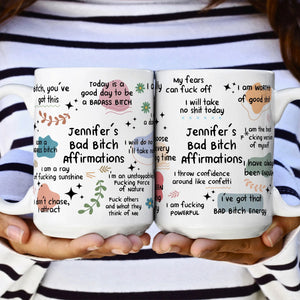 bitch, you've
got this
Today is a
good day to be
a BADASS BITCH
Jennifer's
Bad Bitch
Affirmations
am a
badass
bitch
I will do no
I'll take n
I am a ray
of fucking sunshine
I am an unstoppable
Fucking Force
of nature
don't chase,
attract
Fuck others
and what they
think of me
My fears
can fuck off
I will take
no shit today
I am WORTHY
of good
Jennifer's
Bad Bitch
Affirmations
I am the
version
of myself
I have always
been enough
I throw confidence
around like confetti
I am fucking
POWERFUL
I've got that
BAD BITCH ENERGY